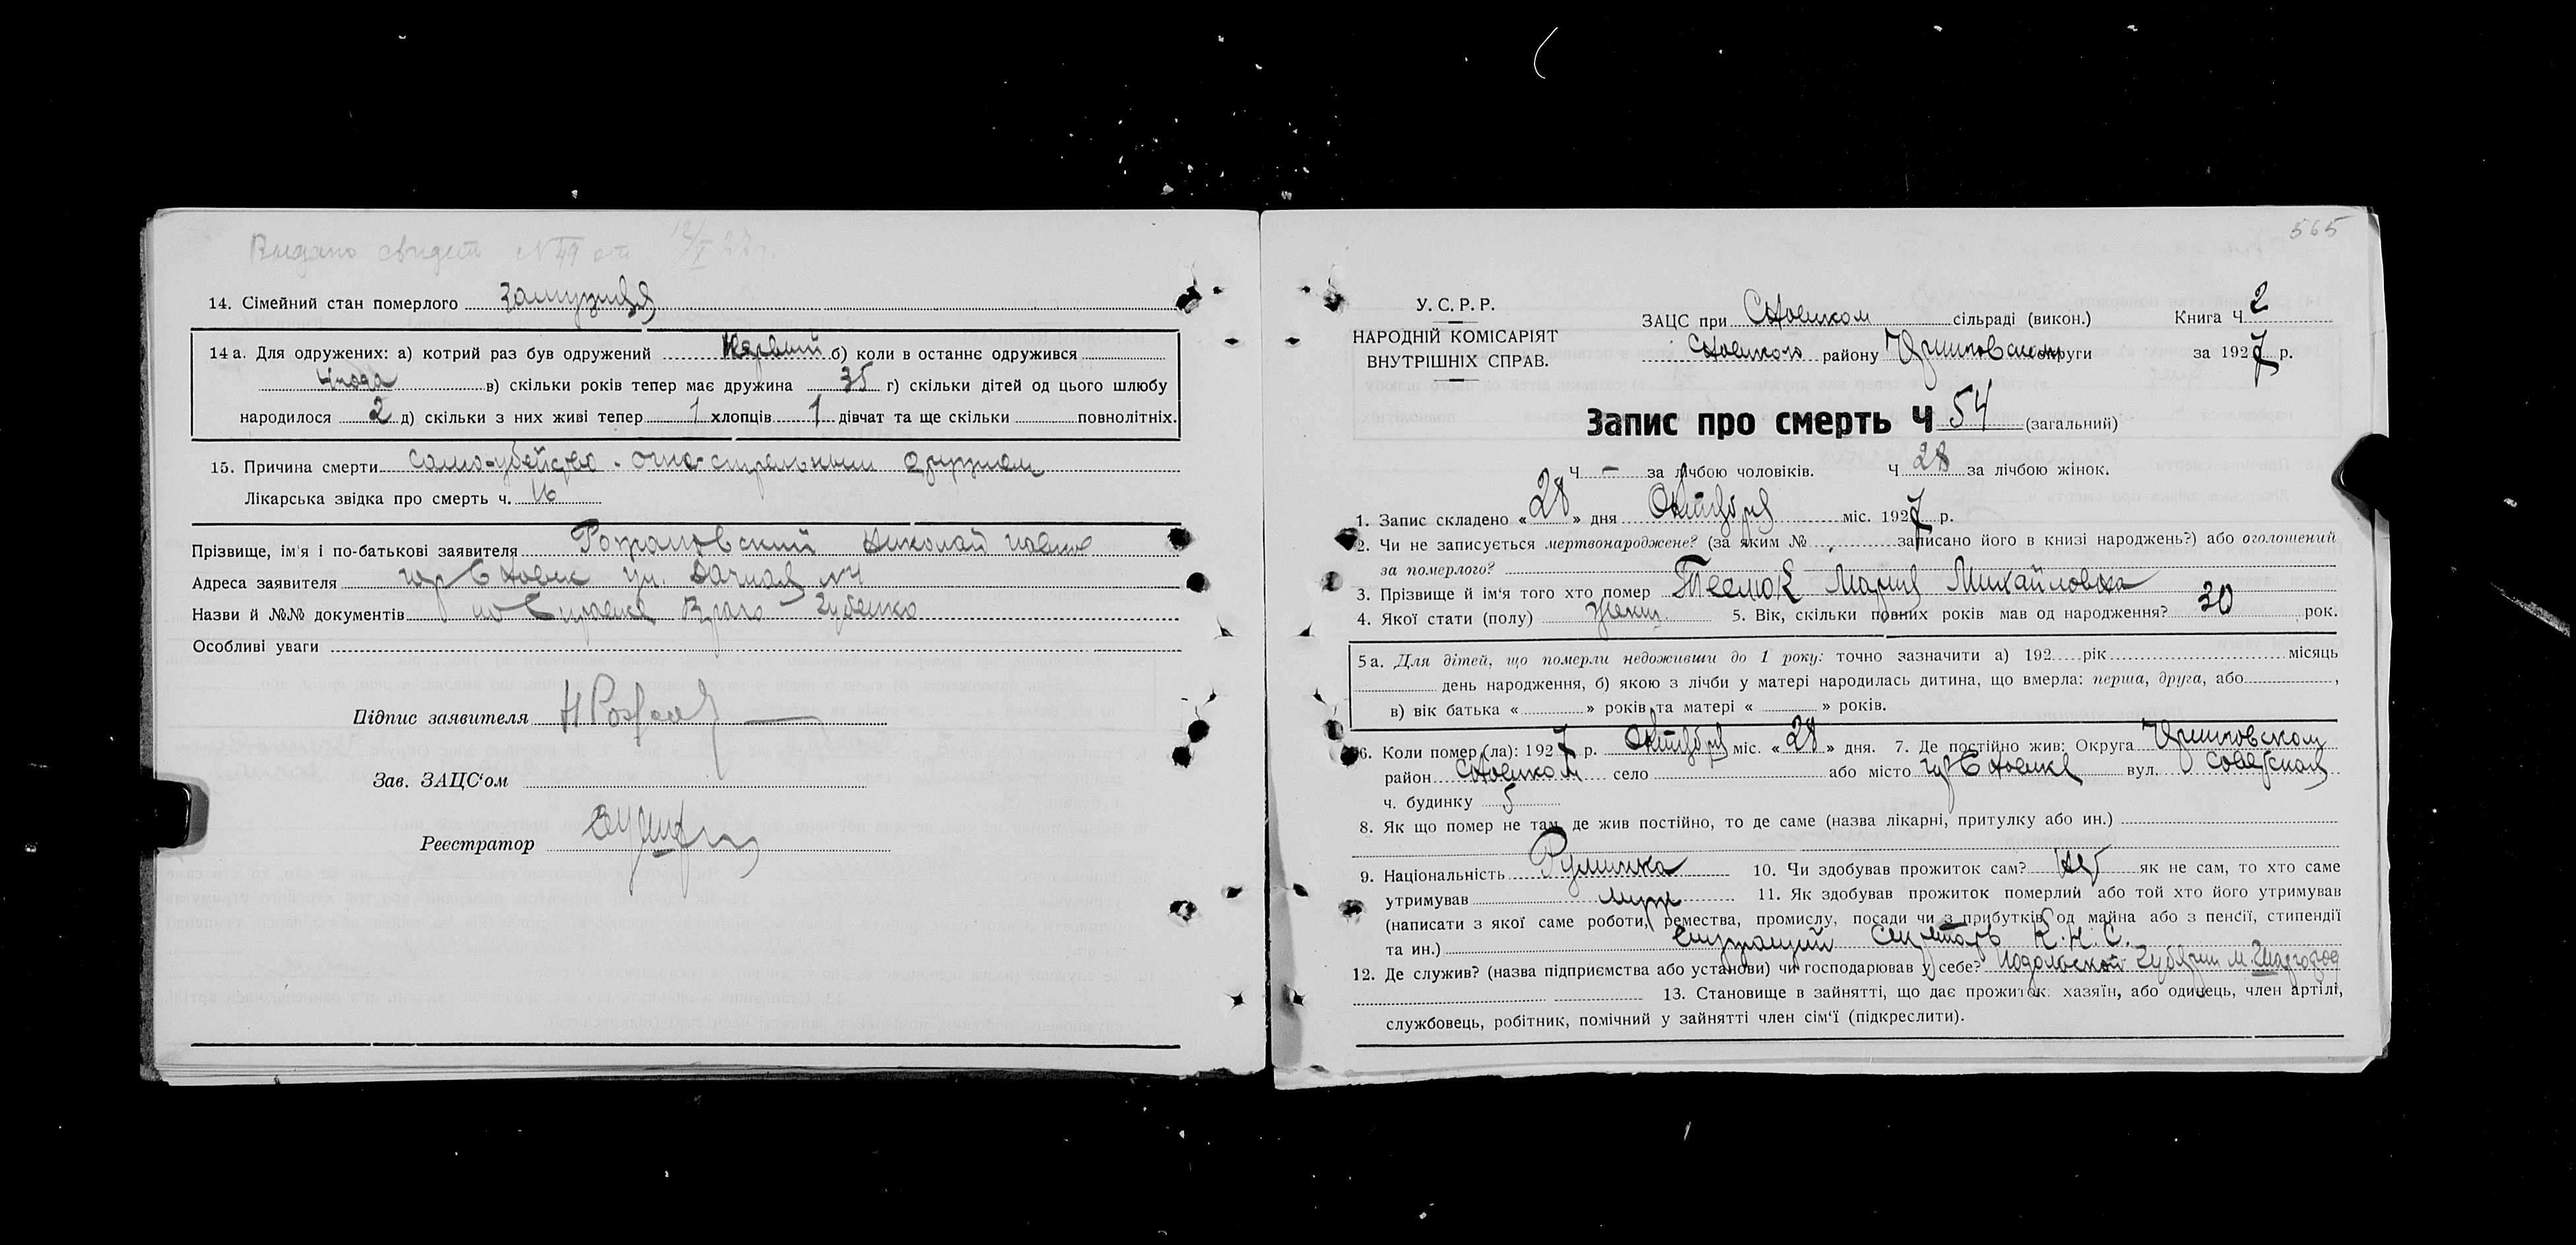 Выдано свидет № 49 от 12/X 27 г.
14. Сімейний стан померлого замужняя
14 а. Для одружених: а) котрий раз був одружений Первый б) коли в останнє одружився
в) скільки років тепер має дружина 35 г) скільки дітей од цього шлюбу
народилося 2 д) скільки з них живі тепер 1 хлопців 1 дівчат та ще скільки повнолітніх.
15. Причина смерти само-убейство огне-стрельным оружием
Лікарська звідка про смерть ч. 16
Прізвище, ім'я і по-батькові заявителя Николай
Адреса заявителя гор Сновск ул. Дачная № 4
Назви й №№ документів по справке Врача Губенко
Особливі уваги
Підпис заявителя
Зав. ЗАЦС'ом
Реєстратор
565
У. С. Р. Р.
НАРОДНІЙ КОМІСАРІЯТ
ВНУТРІШНІХ СПРАВ.
ЗАЦС при Сновском сільраді (викон.) Книга Ч 2
Сновского району округи за 1927 р.
Запис про смерть Ч 54 (загальний)
Ч — за лічбою чоловіків. Ч 28 за лічбою жінок.
1. Запис складено « 28 » дня Октября міс. 1927 р.
2. Чи не записується мертвонароджене? (за яким № записано його в книзі народжень?) або оголошений
за померлого?
3. Прізвище й ім'я того хто помер Теслюк Мария Михайловна
4. Якої стати (полу) женщ. 5. Вік, скільки повних років мав од народження? 30 рок.
5 а. Для дітей, що померли недоживши до 1 року: точно зазначити а) 192 рік місяць
день народження, б) якою з лічби у матері народилась дитина, що вмерла: перша, друга, або ,
в) вік батька « » років та матері « » років.
6. Коли помер (ла): 1927 р. Октября міс. « 28 » дня. 7. Де постійно жив: Округа
район Сновском село або місто гор Сновске вул. Советская
ч. будинку 5
8. Як що помер не там, де жив постійно, то де саме (назва лікарні, притулку або ин.)
9. Національність Румынка 10. Чи здобував прожиток сам? Нет як не сам, то хто саме
утримував муж 11. Як здобував прожиток померлий або той хто його утримував
(написати з якої саме роботи, ремества, промислу, посади чи з прибутків од майна або з пенсії, стипендії
та ин.) служащий Секретарь К. Н. С.
12. Де служив? (назва підприємства або установи) чи господарював у себе? Подольской Губернии м. Шаргород
13. Становище в зайнятті, що дає прожиток: хазяїн, або одинець, член артілі,
службовець, робітник, помічний у зайнятті член сім'ї (підкреслити).